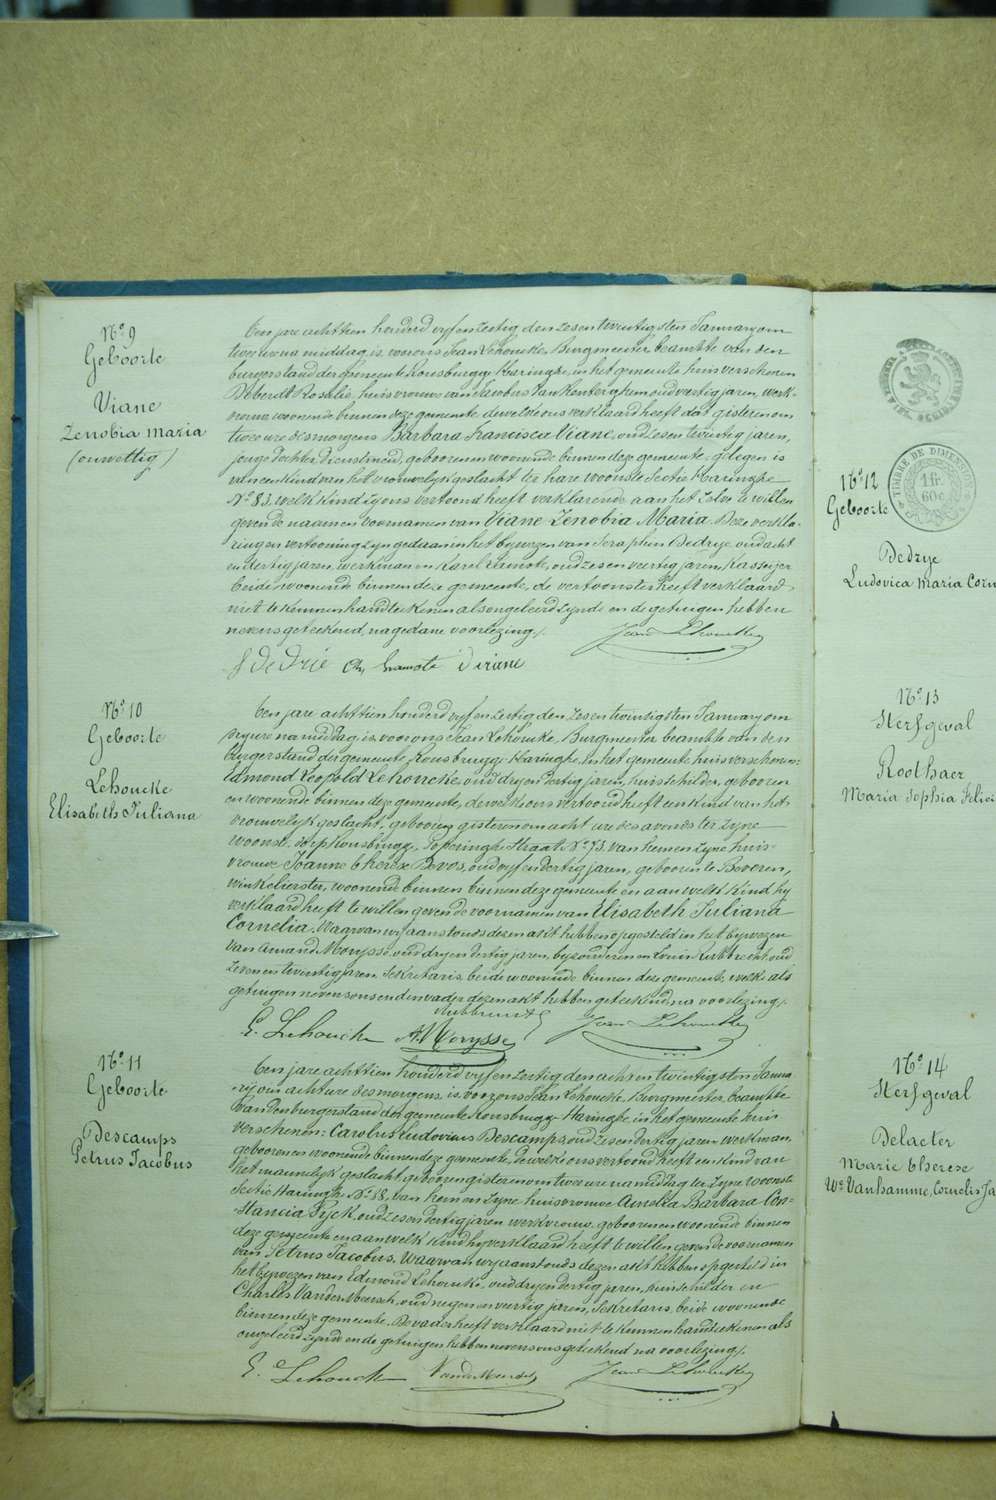 Nº 9
Geboorte
Viane
Zenobia Maria
(onwettig)
Ten jare achttien honderd vyf en zestig den zes en twintigsten January om
twee uren na middag, is voor ons Jean Lehoucke, Burgmeester beambte van den
burgerstand der Gemeente Rousbrugge Haringhe, in het gemeente huis verschenen
Deberdt Rosalie, huisvrouwe van Jacobus Van Renterghem oud vertig jaren, werk-
vrouw woonende binnen deze gemeente, dewelke ons verklaard heeft dat gisteren om
twee ure des morgens Barbara Francisca Viane, oud zes en twintig jaren,
jonge dochter dienstmeid, geboren en woonende binnen deze gemeente, gelegen is
van een kind van het vrouwelyk geslacht ter hare woonste Sectie Haringhe
Nº 83. welk kind zy ons vertoond heeft verklarende aan het zelve te willen
geven de naam en voornamen van Viane Zenobia Maria. Deze verkla-
ring en vertooning zyn gedaan in het bywezen van Seraphin Dedrye oud acht
en dertig jaren, werkman en Karel Hamote, oud zes en veertig jaren, Kasseijer
beide woonende binnen deze gemeente, de vertoonster heeft verklaard
niet te kennen handteekenen als ongeleerd zynde en de getuigen hebben
nevens geteekend, na gedane voorlezing./.
Jean Lehoucke
S De Drie Ch, hamote
Nº 10
Geboorte
Lehoucke
Elisabeth Juliana
Ten jare achttien honderd vyf en zestig den zes en twintigsten January om
ure na middag, is voor ons Jean Lehoucke, Burgmeester beambte van den
burgerstand der gemeente Rousbrugge Haringhe, in het gemeente huis verschenen:
Edmond Léopold Lehoucke, oud dry en dertig jaren, huisschilder, geboren
en woonende binnen deze gemeente, dewelke ons vertoond heeft een kind van het
vrouwelyk geslacht, geboren gisteren om acht ure des avonds ter zyne
woonst dorp Rousbrugge, Poperinghe Straat Nº 73. van hem en zyne huis-
vrouwe Joanne Therese Bevos, oud vyf en dertig jaren, geboren te Beveren,
winkelierster, woonende binnen binnen deze gemeente en aan welk kind hy
verklaard heeft te willen geven de voornamen van Elisabeth Juliana
Cornelia. Waarvan wy aanstonds dezen akt hebben opgesteld in het bywezen
van Amand Morysse, oud dry en dertig jaren, byzonderen en Louis Lubbrecht, oud
zeven en twintig jaren, Sekretaris, beide woonende binnen deze gemeente, welke als
getuigen nevens ons en den vader dezen akt hebben geteekend na voorlezing./.
E. Lehoucke A. Morysse Jean Lehoucke
Nº 11
Geboorte
Descamps
Petrus Jacobus
Ten jare achttien honderd vyf en zestig den acht en twintigsten Janua-
ry om acht ure des morgens, is voor ons Jean Lehoucke, Burgmeester, beambte
van den burgerstand der gemeente Rousbrugge-Haringhe, in het gemeente huis
verschenen: Carolus Ludovicus Descamps, oud zes en dertig jaren, werkman,
geboren en woonende binnen deze gemeente, dewelke ons vertoond heeft een kind van
het mannelyk geslacht, geboren gisteren om twee ure na middag ter zyne woonste
Sectie Haringhe Nº 18, van hem en zyne huisvrouwe Amelia Barbara Con-
stancia Fyck, oud zes en dertig jaren werkvrouw, geboren en woonende binnen
deze gemeente en aan welk kind hy verklaard heeft te willen geven de voornamen
van Petrus Jacobus. Waarvan wy aanstonds dezen akt hebben opgesteld in
het bywezen van Edmond Lehoucke, oud dry en dertig jaren, huisschilder en
Charles Vander Meersch, oud negen en veertig jaren, Sekretaris, beide woonende
binnen deze gemeente. De vader heeft verklaard niet te kennen handteekenen als
ongeleerd zynde en de getuigen hebben nevens ons geteekend na voorlezing./.
E. Lehoucke Jean Lehoucke
TIMBRE DE DIMENSION
1 fr.
60 c.
Nº 12
Geboorte
Dedrye
Ludovica Maria Corn
Nº 13
Sterfgeval
Roothaer
Maria Sophia Felici
Nº 14
Sterfgeval
Delaeter
Marie Therese
We Vanhamme, Cornelis Ja